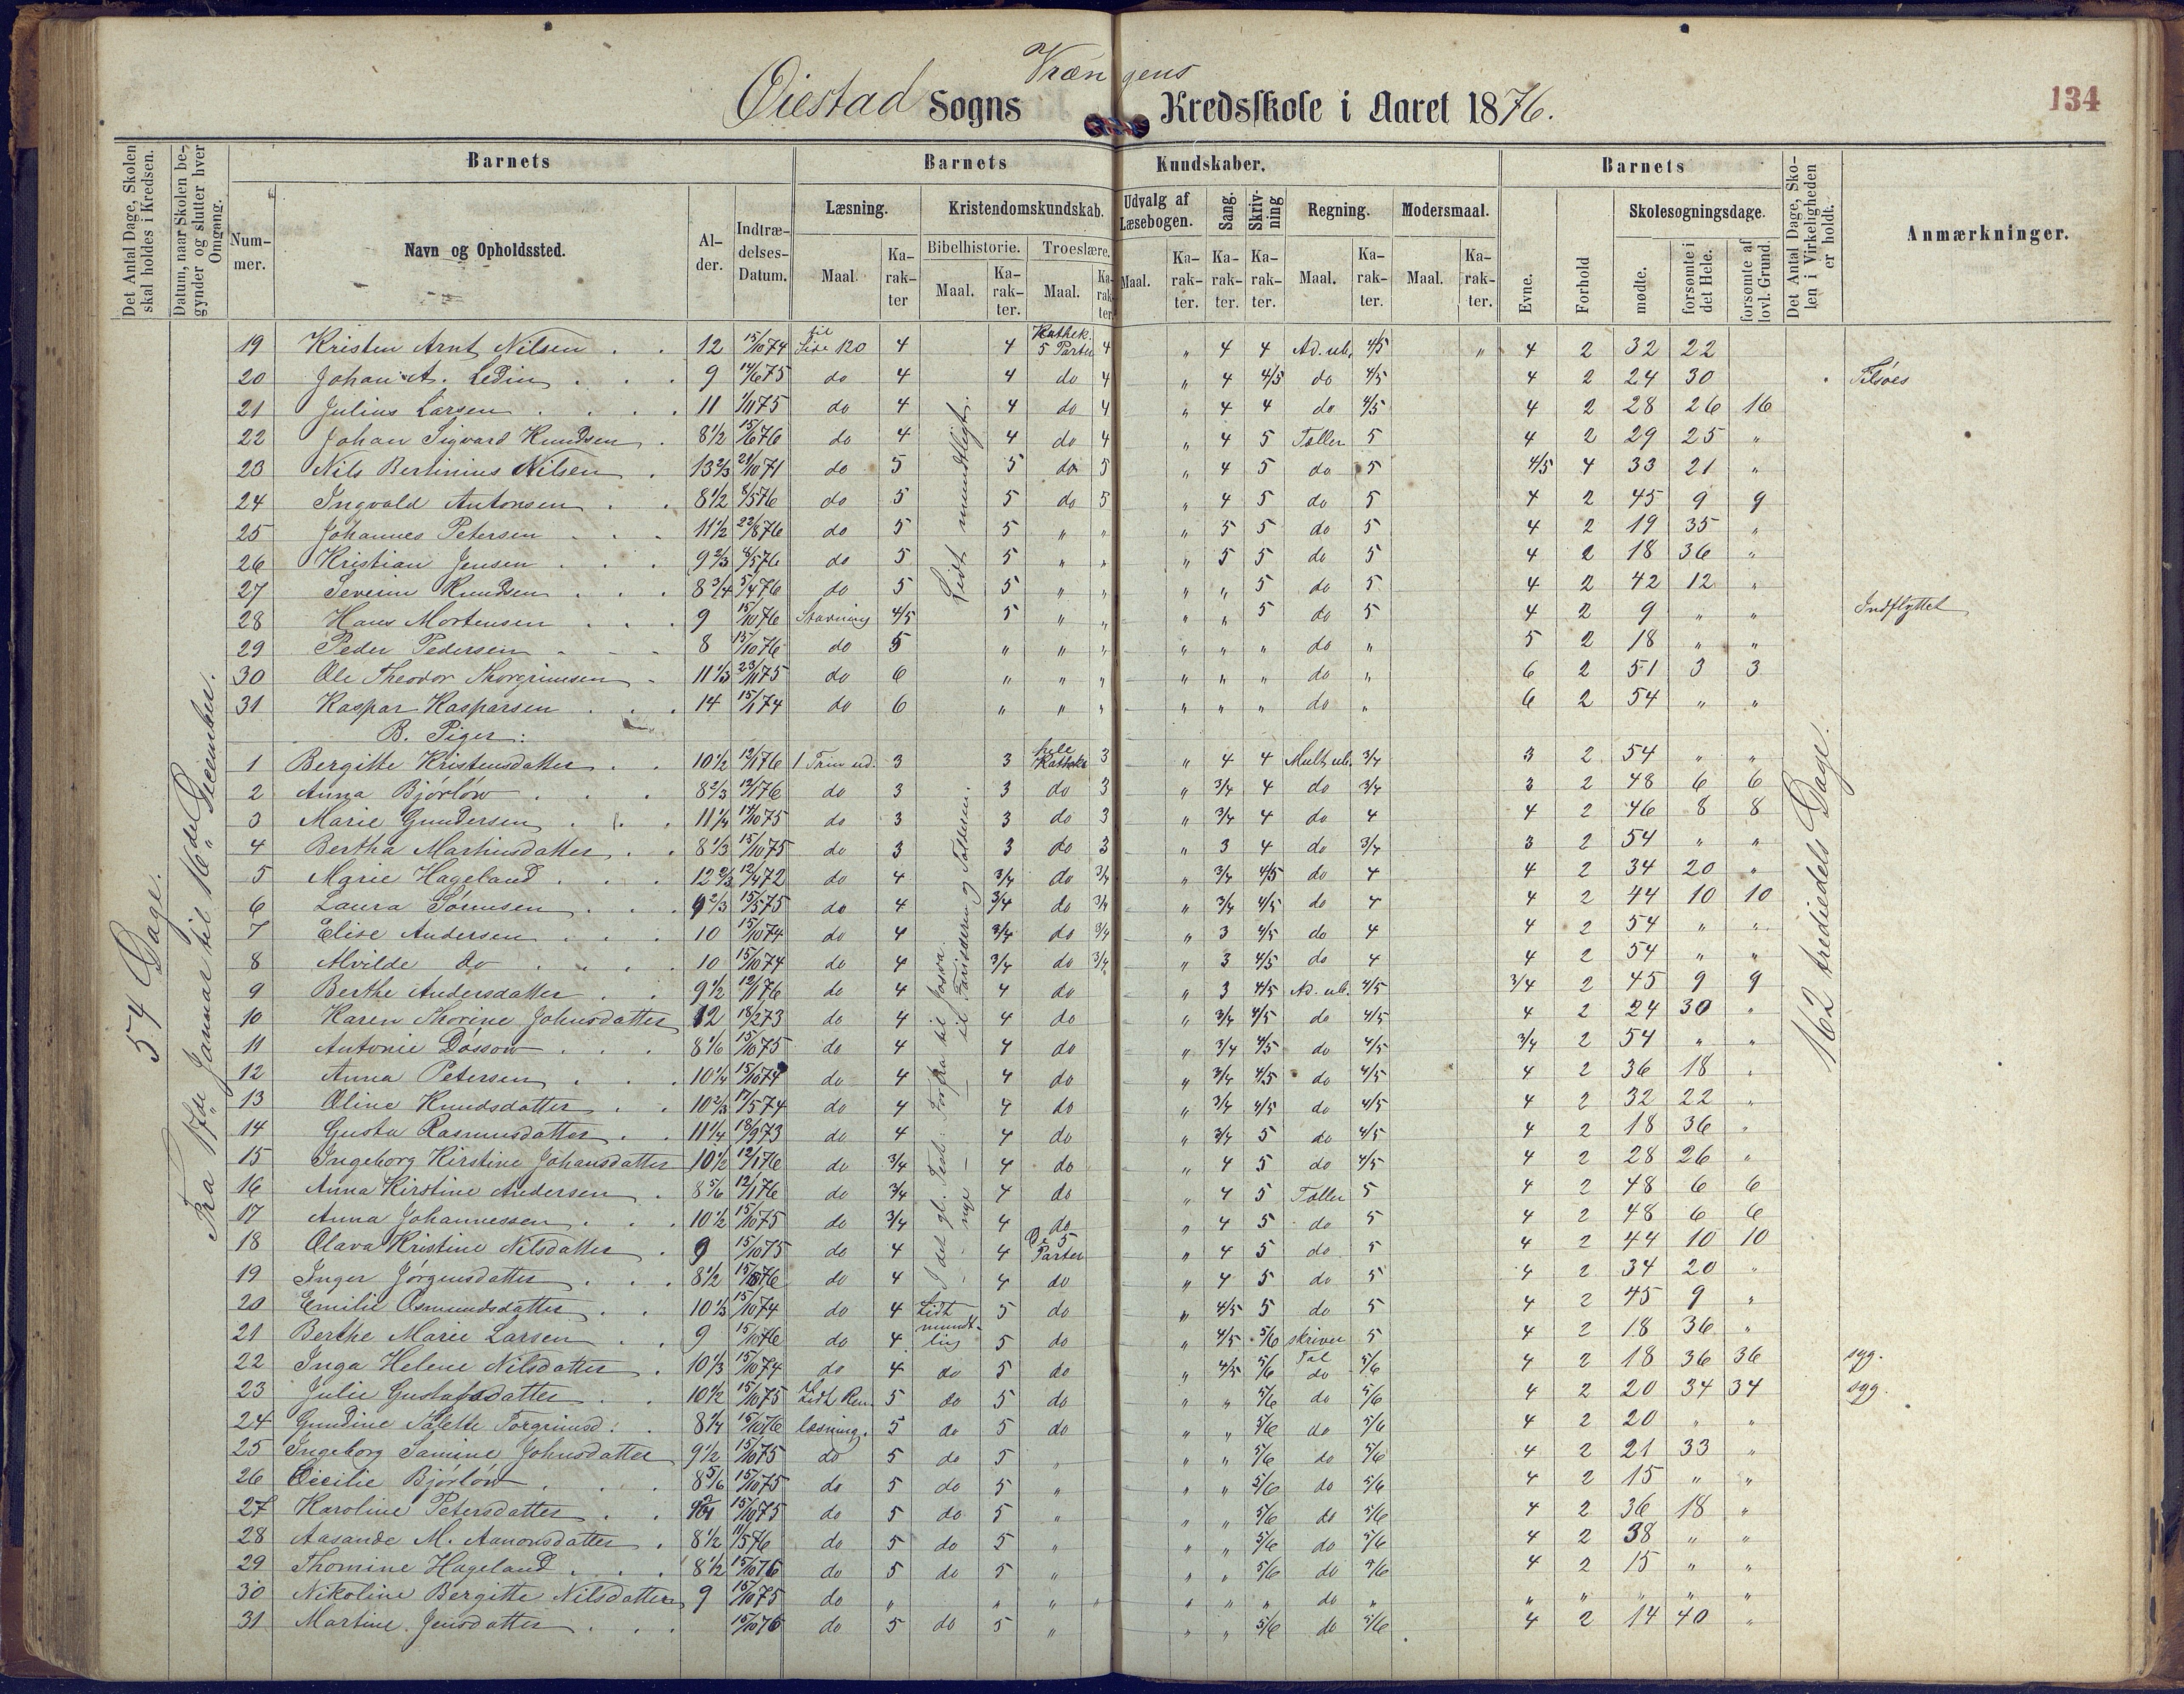 Øiestad Sogns Vrængens Kredsskole i Aaret 1876.
134
Det Antal Dage, Skolen skal holdes i Kredsen.
Datum, naar Skolen begynder og slutter hver Omgang.
Barnets
Nummer.
Navn og Opholdssted.
Alder.
Indtrædelses-Datum.
Barnets Kundskaber.
Læsning.
Maal.
Karakter
Kristendomskundskab.
Bibelhistorie.
Maal.
Karakter.
Troeslære.
Maal.
Karakter
Udvalg af Læsebogen.
Maal.
Karakter.
Sang.
Karakter.
Skrivning
Karakter.
Regning.
Maal.
Karakter.
Modersmaal.
Maal.
Karakter.
Barnets
Evne.
Forhold
Skolesogningsdage.
mødte.
forsømte i det Hele.
forsømte af lovl. Grund.
Det Antal Dage, Skolen i Virkeligheden er holdt.
Anmærkninger.
54 Dage.
Fra 17de Januar til 16de December.
162 trediedels Dage.
Lidt mundtligt.
19 Kristen Arnt Nilsen . . 12 15/10 74 til Side 120 4 4 Kathek. 5 Parter 4 " 4 4 Ad. ub. 4/5 " 4 2 32 22
20 Johan A. Ledin . . . 9 14/6 75 do 4 4 do 4 " 4 4/5 do 4/5 4 2 24 30 Tilsøes
21 Julius Larsen . . . . 11 1/11 75 do 4 4 do 4 " 4 4 do 4/5 4 2 28 26 16
22 Johan Sigvard Knudsen . 8 1/2 15/6 76 do 4 4 do 4 " 4 5 Tæller 5 4 2 29 25 "
23 Nils Bertinius Nilsen . 13 2/3 21/10 71 do 5 5 do 5 " 4 5 do 5 4/5 4 33 21 "
24 Ingvald Antonsen . . 8 1/2 8/5 76 do 5 5 do 5 " 4 5 do 5 4 2 45 9 9
25 Johannes Petersen . . . 11 1/2 22/8 76 do 5 5 " " " 5 5 do 5 4 2 19 35 "
26 Kristian Jensen . . . 9 2/3 8/5 76 do 5 5 " " " 5 5 do 5 4 2 18 36 "
27 Severin Knudsen . . . 8 3/4 5/4 76 do 5 5 " " " " 5 do 5 4 2 42 12 "
28 Hans Mortensen . . . 9 15/10 76 Stavning 4/5 5 " " " " 5 do 5 4 2 9 " " Indflyttet
29 Peder Pedersen - - - 8 15/10 76 do 5 " " " " " " do " 5 2 18 " "
30 Ole Theodor Thorgrimsen - 11 1/3 23/11 75 do 6 " " " " " " do " 6 2 51 3 3
31 Kaspar Kasparsen . . . 14 15/1 74 do 6 " " " " " " do " 6 2 54 " "
B. Piger:
1 Bergitte Kristensdatter . . 10 1/2 12/1 76 1 Trin ud. 3 3 hele Kathek 3 " 4 4 Mult ub. 3/4 3 2 54 " "
2 Anna Bjørløw . . . 8 2/3 12/1 76 do 3 3 do 3 " 3/4 4 do 3/4 3 2 48 6 6
3 Marie Gundersen . . . 11 1/4 14/10 75 do 3 3 do 3 " 3/4 4 do 4 4 2 46 8 8
4 Bertha Martinsdatter . . 8 1/3 15/10 75 do 3 3 do 3 " 3 4 do 3/4 3 2 54 " "
5 Marie Hageland . . . 12 2/3 12/4 72 do 4 3/4 do 3/4 " 3/4 4/5 do 4 4 2 34 20 "
6 Laura Sørensen . . . 9 2/3 15/5 75 do 4 3/4 do 3/4 " 3/4 4/5 do 4 4 2 44 10 10
7 Elise Andersen . . . 10 15/10 74 do 4 3/4 do 3/4 " 3 4/5 do 4 4 2 54 " "
8 Alvilde do . . . . 10 15/10 74 do 4 3/4 do 3/4 " 3 4/5 do 4 4 2 54 " "
9 Berthe Andersdatter . . 9 1/2 12/1 76 do 4 4 do " 3 4/5 Ad. ub. 4/5 3/4 2 45 9 9
10 Karen Thorine Johnsdatter 12 18/2 73 do 4 4 do " 3/4 4/5 do 4/5 4 2 24 30 "
11 Antonie Dossow . . . 8 1/6 15/10 75 do 4 4 do " 3/4 4/5 do 4/5 3/4 2 54 " "
12 Anna Petersen . . . 10 1/4 15/10 74 do 4 4 do " 3/4 4/5 do 4/5 4 2 36 18 "
13 Oline Knudsdatter . . 10 2/3 17/5 74 do 4 4 do " 3/4 4/5 do 4/5 4 2 32 22 "
14 Gusta Rasmusdatter . . 11 1/4 18/9 73 do 4 4 do " 3/4 5 do 4/5 4 2 18 36 "
15 Ingeborg Kirstine Johansdatter 10 1/2 12/1 76 do 3/4 4 do " 4 5 do 4/5 4 2 28 26 "
16 Anna Kirstine Andersen . 8 5/6 12/1 76 do 3/4 4 do " 4 5 Tæller 5 4 2 48 6 6
17 Anna Johannessen . . . 10 1/2 15/10 75 do 3/4 4 do " 4 5 do 5 4 2 48 6 6
18 Olava Kristine Nilsdatter . 9 15/10 75 do 4 4 De 5 Parter " 4 5 do 5 4 2 44 10 10
19 Inger Jørgensdatter . . . 8 1/2 15/10 76 do 4 4 do " 4 5 do 5 4 2 34 20 "
20 Emilie Osmundsdatter . . 10 1/3 15/10 74 do 4 Lidt 5 do " 4/5 5 do 5 4 2 45 9 "
21 Berthe Marie Larsen . . 9 15/10 76 do 4 mundtlig 5 do " 4/5 5/6 skriver 5 4 2 18 36 "
22 Inga Helene Nilsdatter . 10 1/3 15/10 74 do 4 do 5 do " 4/5 5/6 Tal do 5/6 4 2 18 36 36 syg.
23 Julie Gustafsdatter . . 10 1/2 15/10 75 Lidt Ren 5 do 5 do " " 5/6 do 5/6 4 2 20 34 34 syg.
24 Gundine Talette Torgrimsd: . 8 1/4 15/10 76 læsning. 5 do 5 do " " 5/6 do 5/6 4 2 20 " "
25 Ingeborg Samine Johnsdatter 9 1/2 15/10 75 do 5 do 5 " " " 5/6 do 5/6 4 2 21 33 "
26 Cicilie Bjørløw . . . 8 5/6 15/10 75 do 5 do 5 " " " 5/6 do 5/6 4 2 15 " "
27 Karoline Petersdatter . . 15/10 75 do 5 do 5 " " " 5/6 do 5/6 4 2 36 18 "
28 Aasande M. Aanonsdatter . 8 1/2 11/5 76 do 5 do 5 " " " 5/6 do 5/6 4 2 38 " "
29 Thomine Hageland . . . 8 1/2 15/10 76 do 5 do 5 " " " 5/6 do 5/6 4 2 15 " "
30 Nikoline Bergitte Nilsdatter 9 15/10 75 do " " " " " " " do " " " " " "
31 Martine Jensdatter . . . 15/10 76 do 5 do 5 " " " 5/6 do 5/6 4 2 14 40 "